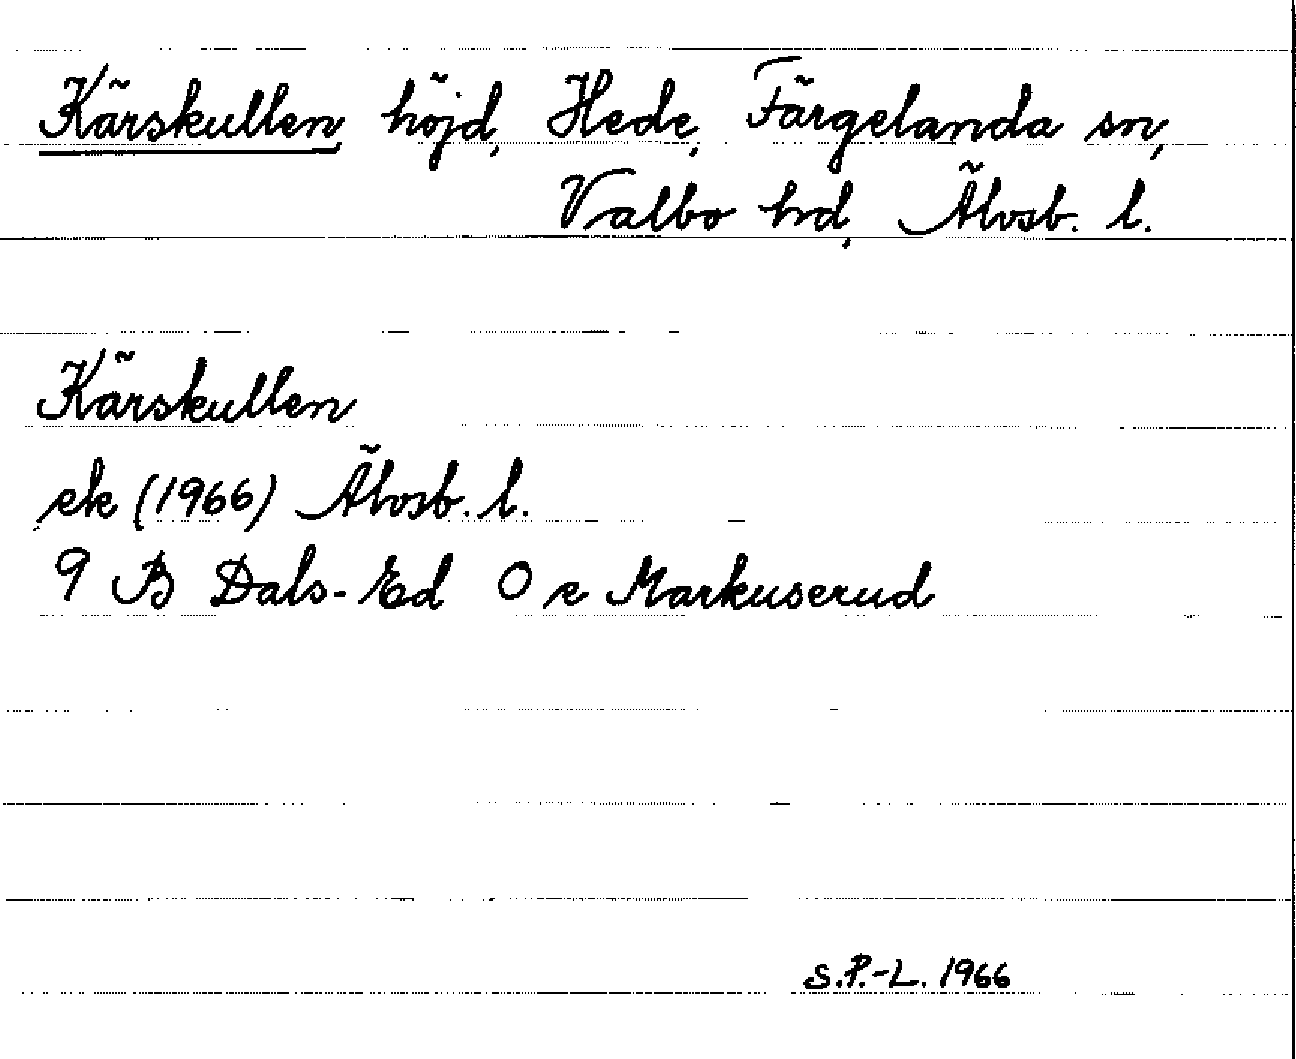 Kärskullen, höjd, Hede, Färgelanda sn,
Valbo hd, Älvsb. l.
Kärskullen
ek (1966) Älvsb. l.
9 B Dals-Ed O e Markuserud
S.P.-L. 1966